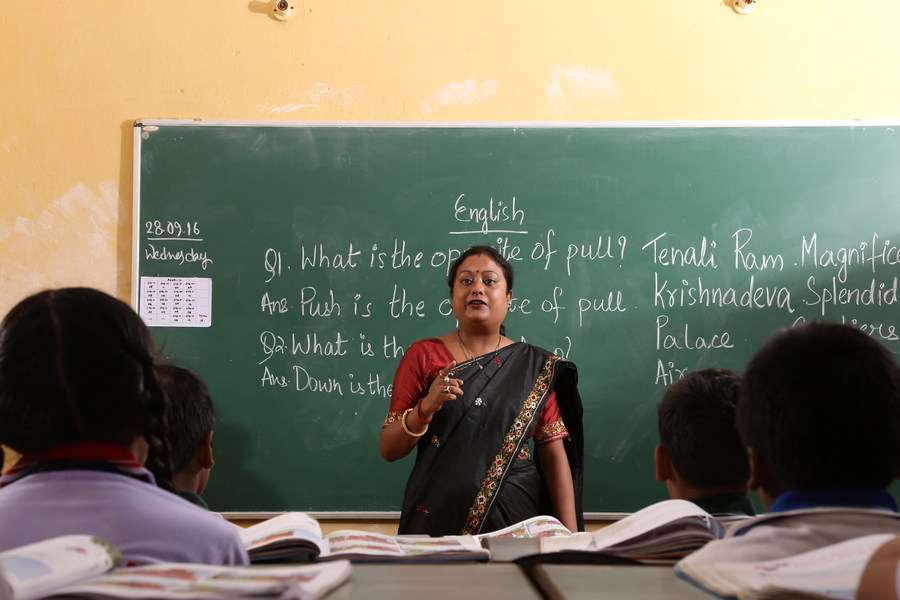 English
28.09.16
Wednesday
Q1. What is the opposite of pull?
Ans Push is the of pull
Q2. What is
Ans. Down is the
Tenali Ram. Magnific
Krishnadeva Splendid
Palace
Air